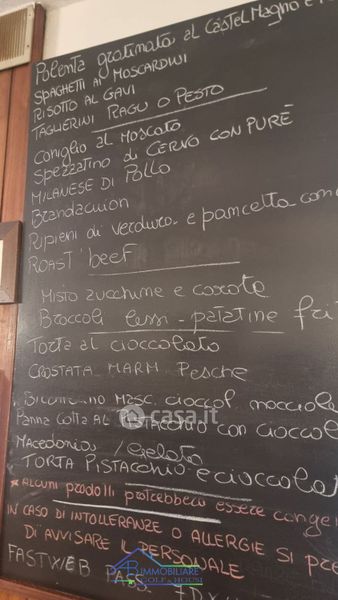 Polenta gratinata al Castel Magno e
SPAGHETTI AI MOSCARDINI
RISOTTO AL GAVI
TAGLIERINI RAGU O PESTO
CONIGLIO AL MOSCATO
SPEZZATINO di CERVO CON PURÈ
MILANESE DI POLLO
Brandacuion
Ripieni di verdura e pancetta con
ROAST' beef
MISTO zucchine e carote
Broccoli lessi - patatine fri
Torta al cioccolato
CROSTATA MARM. Pesche
MASC. cioccol nocciole
Panna Cotta AL PISTACCHIO CON cioccol
Macedonia / Gelato
TORTA PISTACCHIO e cioccolat
* Alcuni prodotti potrebbero essere conge
IN CASO DI INTOLLERANZE O ALLERGIE SI pre
DI AVVISARE IL PERSONALE
FASTWEB PASS.
casa.it
IMMOBILIARE
GOLF & HOUSE